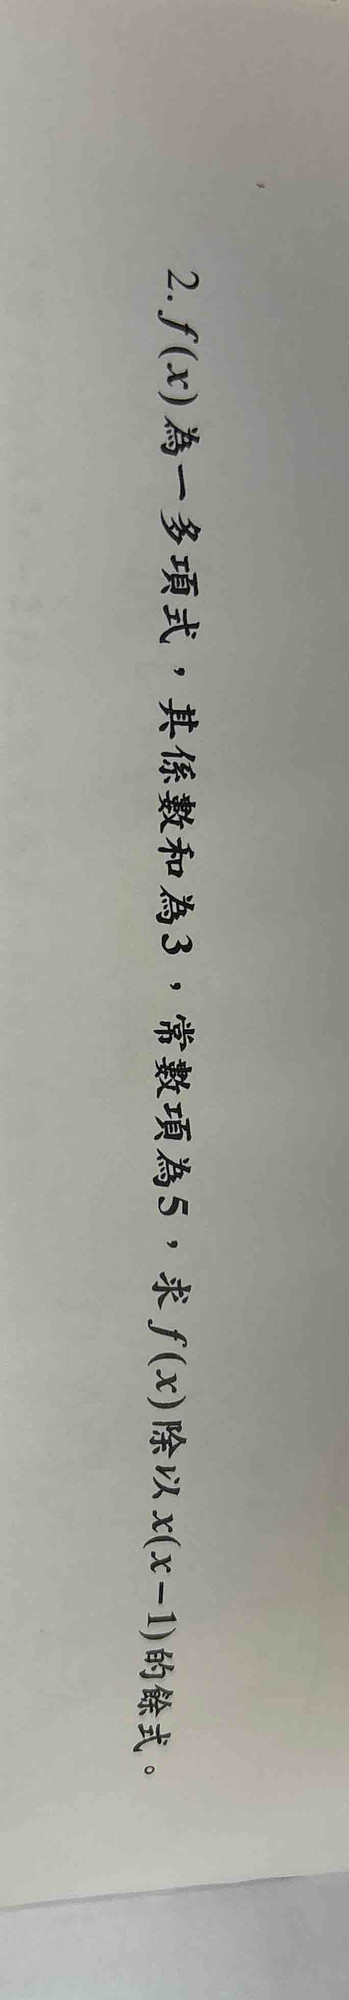 2. f(x)為一多項式，其係數和為3，常數項為5，求f(x)除以x(x−1)的餘式。